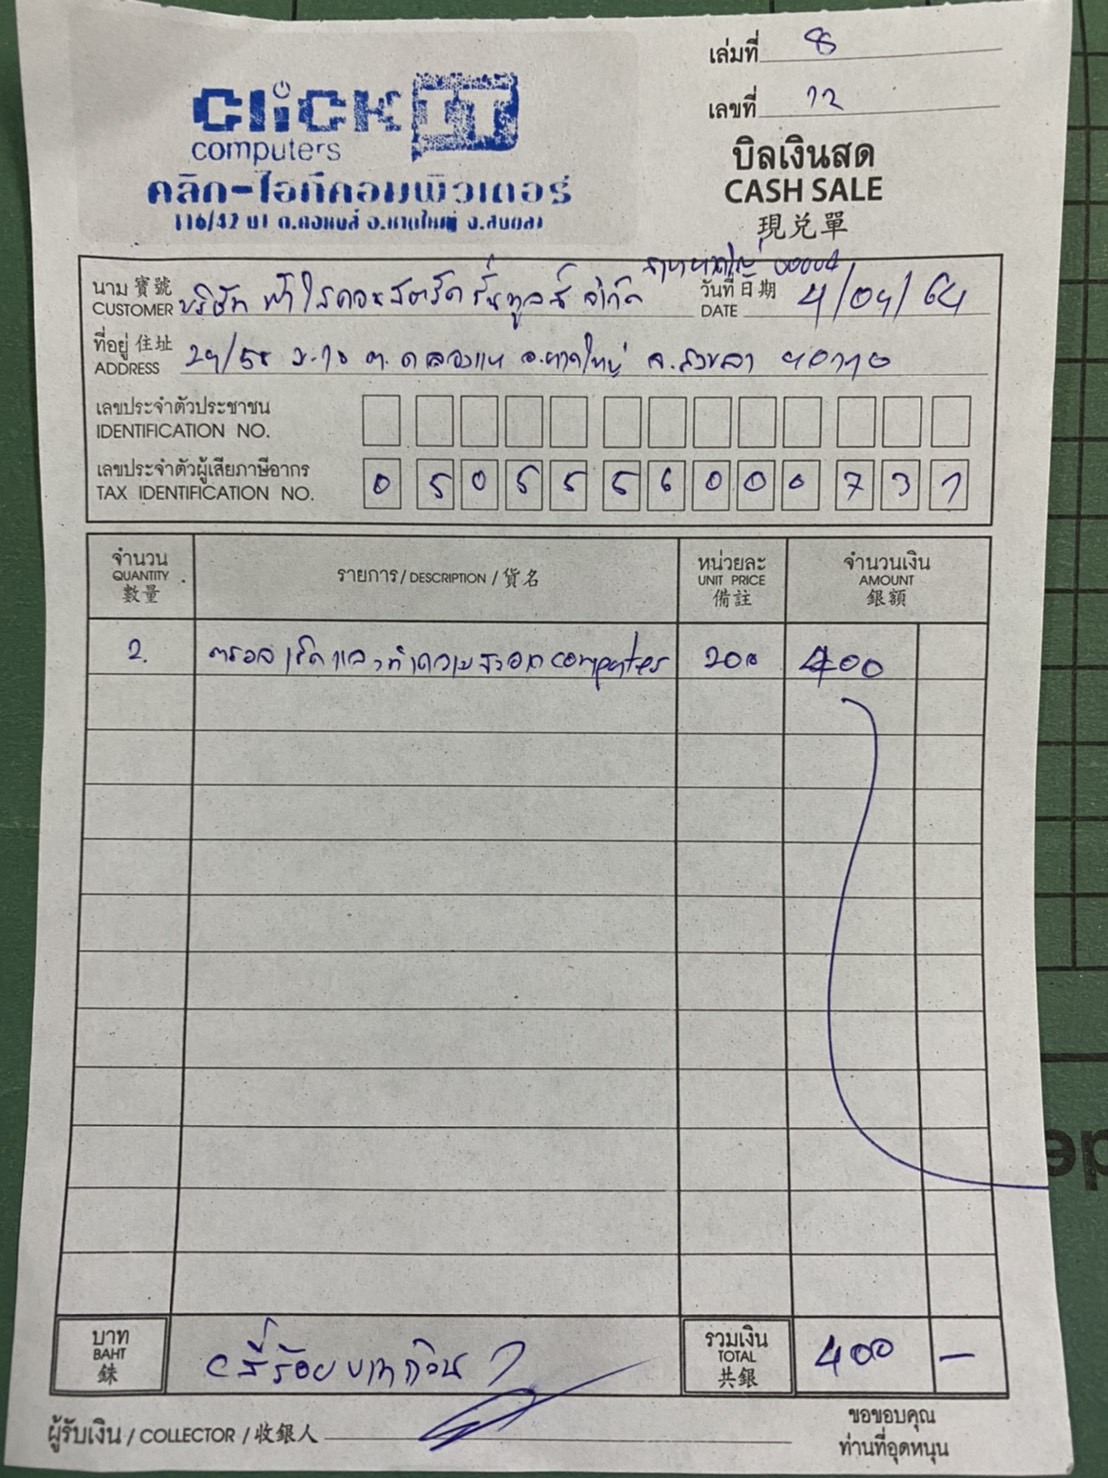 เล่มที่ 8
เลขที่ 12
CLiCK IT
computers
คลิก-ไอทีคอมพิวเตอร์
116/42 ม1 ต.คอหงส์ อ.หาดใหญ่ จ.สงขลา
บิลเงินสด
CASH SALE
現兑單
สาขาหาดใหญ่ 00004
นาม 寶號 CUSTOMER บริษัท ฟ้าใสคอนสตรัคชั่นทูลส์ จำกัด
วันที่ 日期 DATE 4/04/64
ที่อยู่ 住址 ADDRESS 29/58 ม.10 ต.คลองแห อ.หาดใหญ่ จ.สงขลา 90110
เลขประจำตัวประชาชน
IDENTIFICATION NO.
เลขประจำตัวผู้เสียภาษีอากร
TAX IDENTIFICATION NO. 0 5055 56000 731
จำนวน QUANTITY 數量
รายการ / DESCRIPTION / 貨名
หน่วยละ UNIT PRICE 備註
จำนวนเงิน AMOUNT 銀額
2. ตรวจเช็คและทำความสะอาด computer 200 400
บาท BAHT 銖 สี่ร้อยบาทถ้วน
รวมเงิน TOTAL 共銀 400 —
ผู้รับเงิน / COLLECTOR / 收銀人
ขอขอบคุณ
ท่านที่อุดหนุน